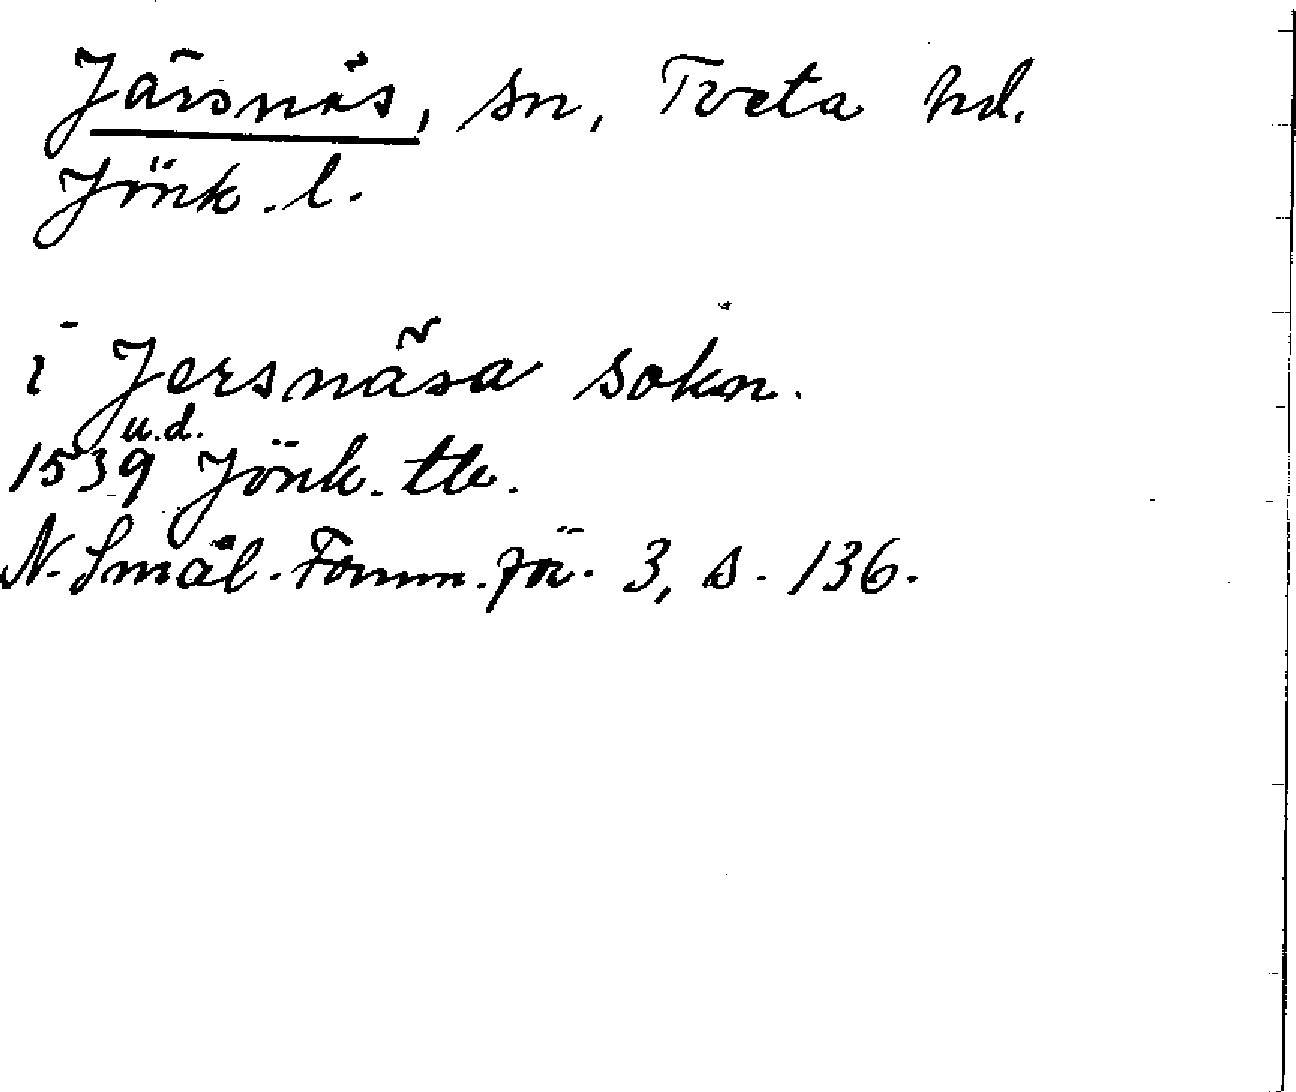 Järsnäs, sn, Tveta hd.
Jönk. l.
i Jersnäsa sokn.
1539 u.d. Jönk. tb.
N. Smål. Fornm. för. 3, s. 136.